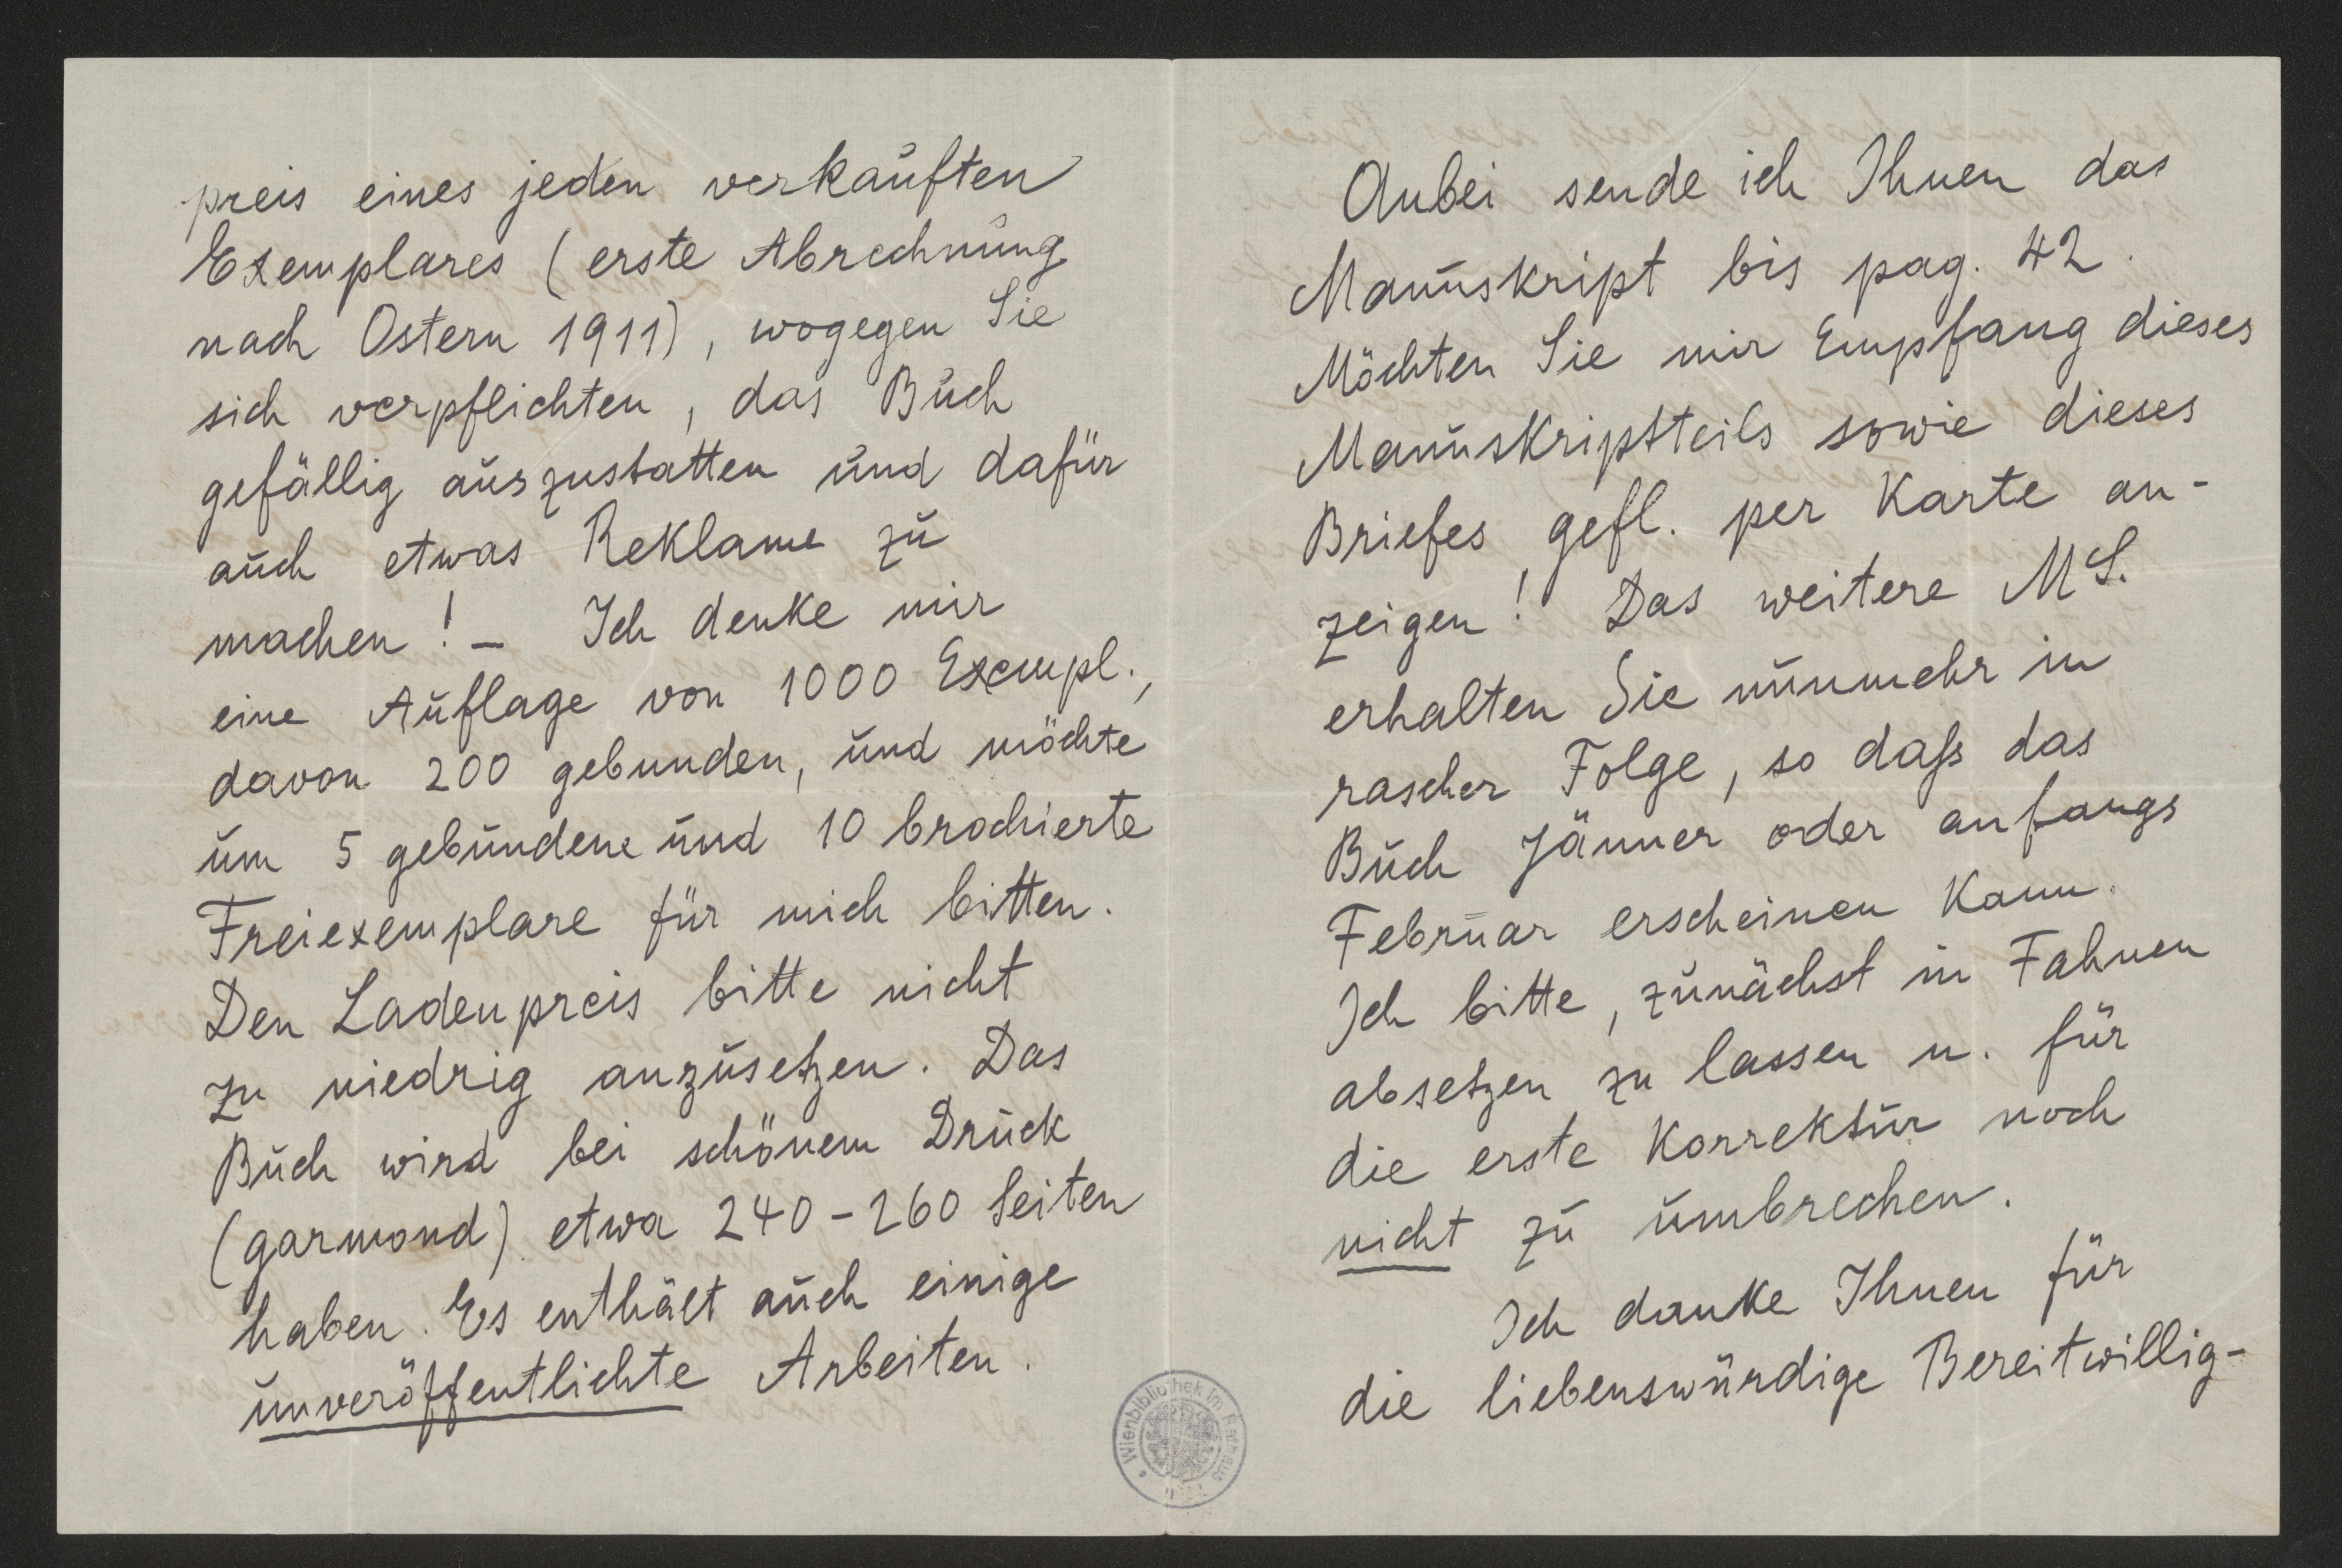 preis eines jeden verkauften
Exemplares (erste Abrechnung
nach Ostern 1911), wogegen Sie
sich verpflichten, das Buch
gefällig auszustatten und dafür
auch etwas Reklame zu
machen! – Ich denke mir
eine Auflage von 1000 Exempl.,
davon 200 gebunden, und möchte
um 5 gebundene und 10 brochierte
Freiexemplare für mich bitten.
Den Ladenpreis bitte nicht
zu niedrig anzusetzen. Das
Buch wird bei schönem Druck
(garmond) etwa 240–260 Seiten
haben. Es enthält auch einige
unveröffentlichte Arbeiten.
Anbei sende ich Ihnen das
Manuskript bis pag. 42.
Möchten Sie mir Empfang dieses
Manuskriptteils sowie dieses
Briefes gefl. per Karte an-
zeigen! Das weitere MS.
erhalten Sie nunmehr in
rascher Folge, so daß das
Buch Jänner oder anfangs
Februar erscheinen kann.
Ich bitte, zunächst in Fahnen
absetzen zu lassen u. für
die erste Korrektur noch
nicht zu umbrechen.
Ich danke Ihnen für
die liebenswürdige Bereitwillig-
Wienbibliothek im Rathaus